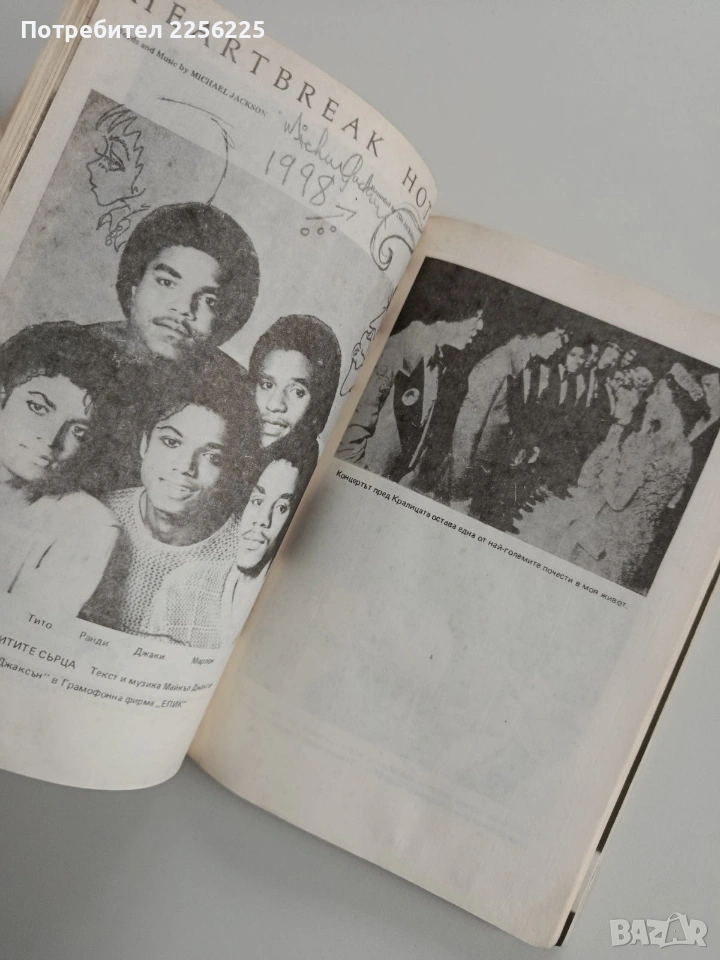 Потребител 2256225
HEARTBREAK HOT
and Music by MICHAEL JACKSON
1998
Тито Ранди Джаки Марлон
ИТИТЕ СЪРЦА Текст и музика Майкъл
Джаксън" в Грамофонна фирма „ЕПИК"
Концертът пред Кралицата остава една от най-големите почести в моя живот.
BAZAR